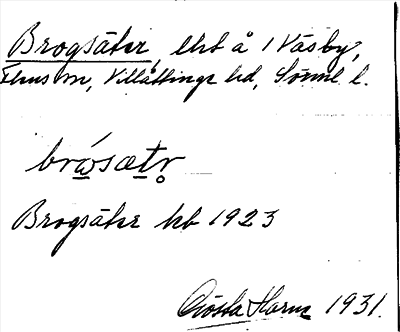 Brogsäter, lht å 1 Väsby,
Flens sn, Villåttinge hd, Södml l.
bråsætr
Brogsäter kb 1923
Gösta Harne 1931.